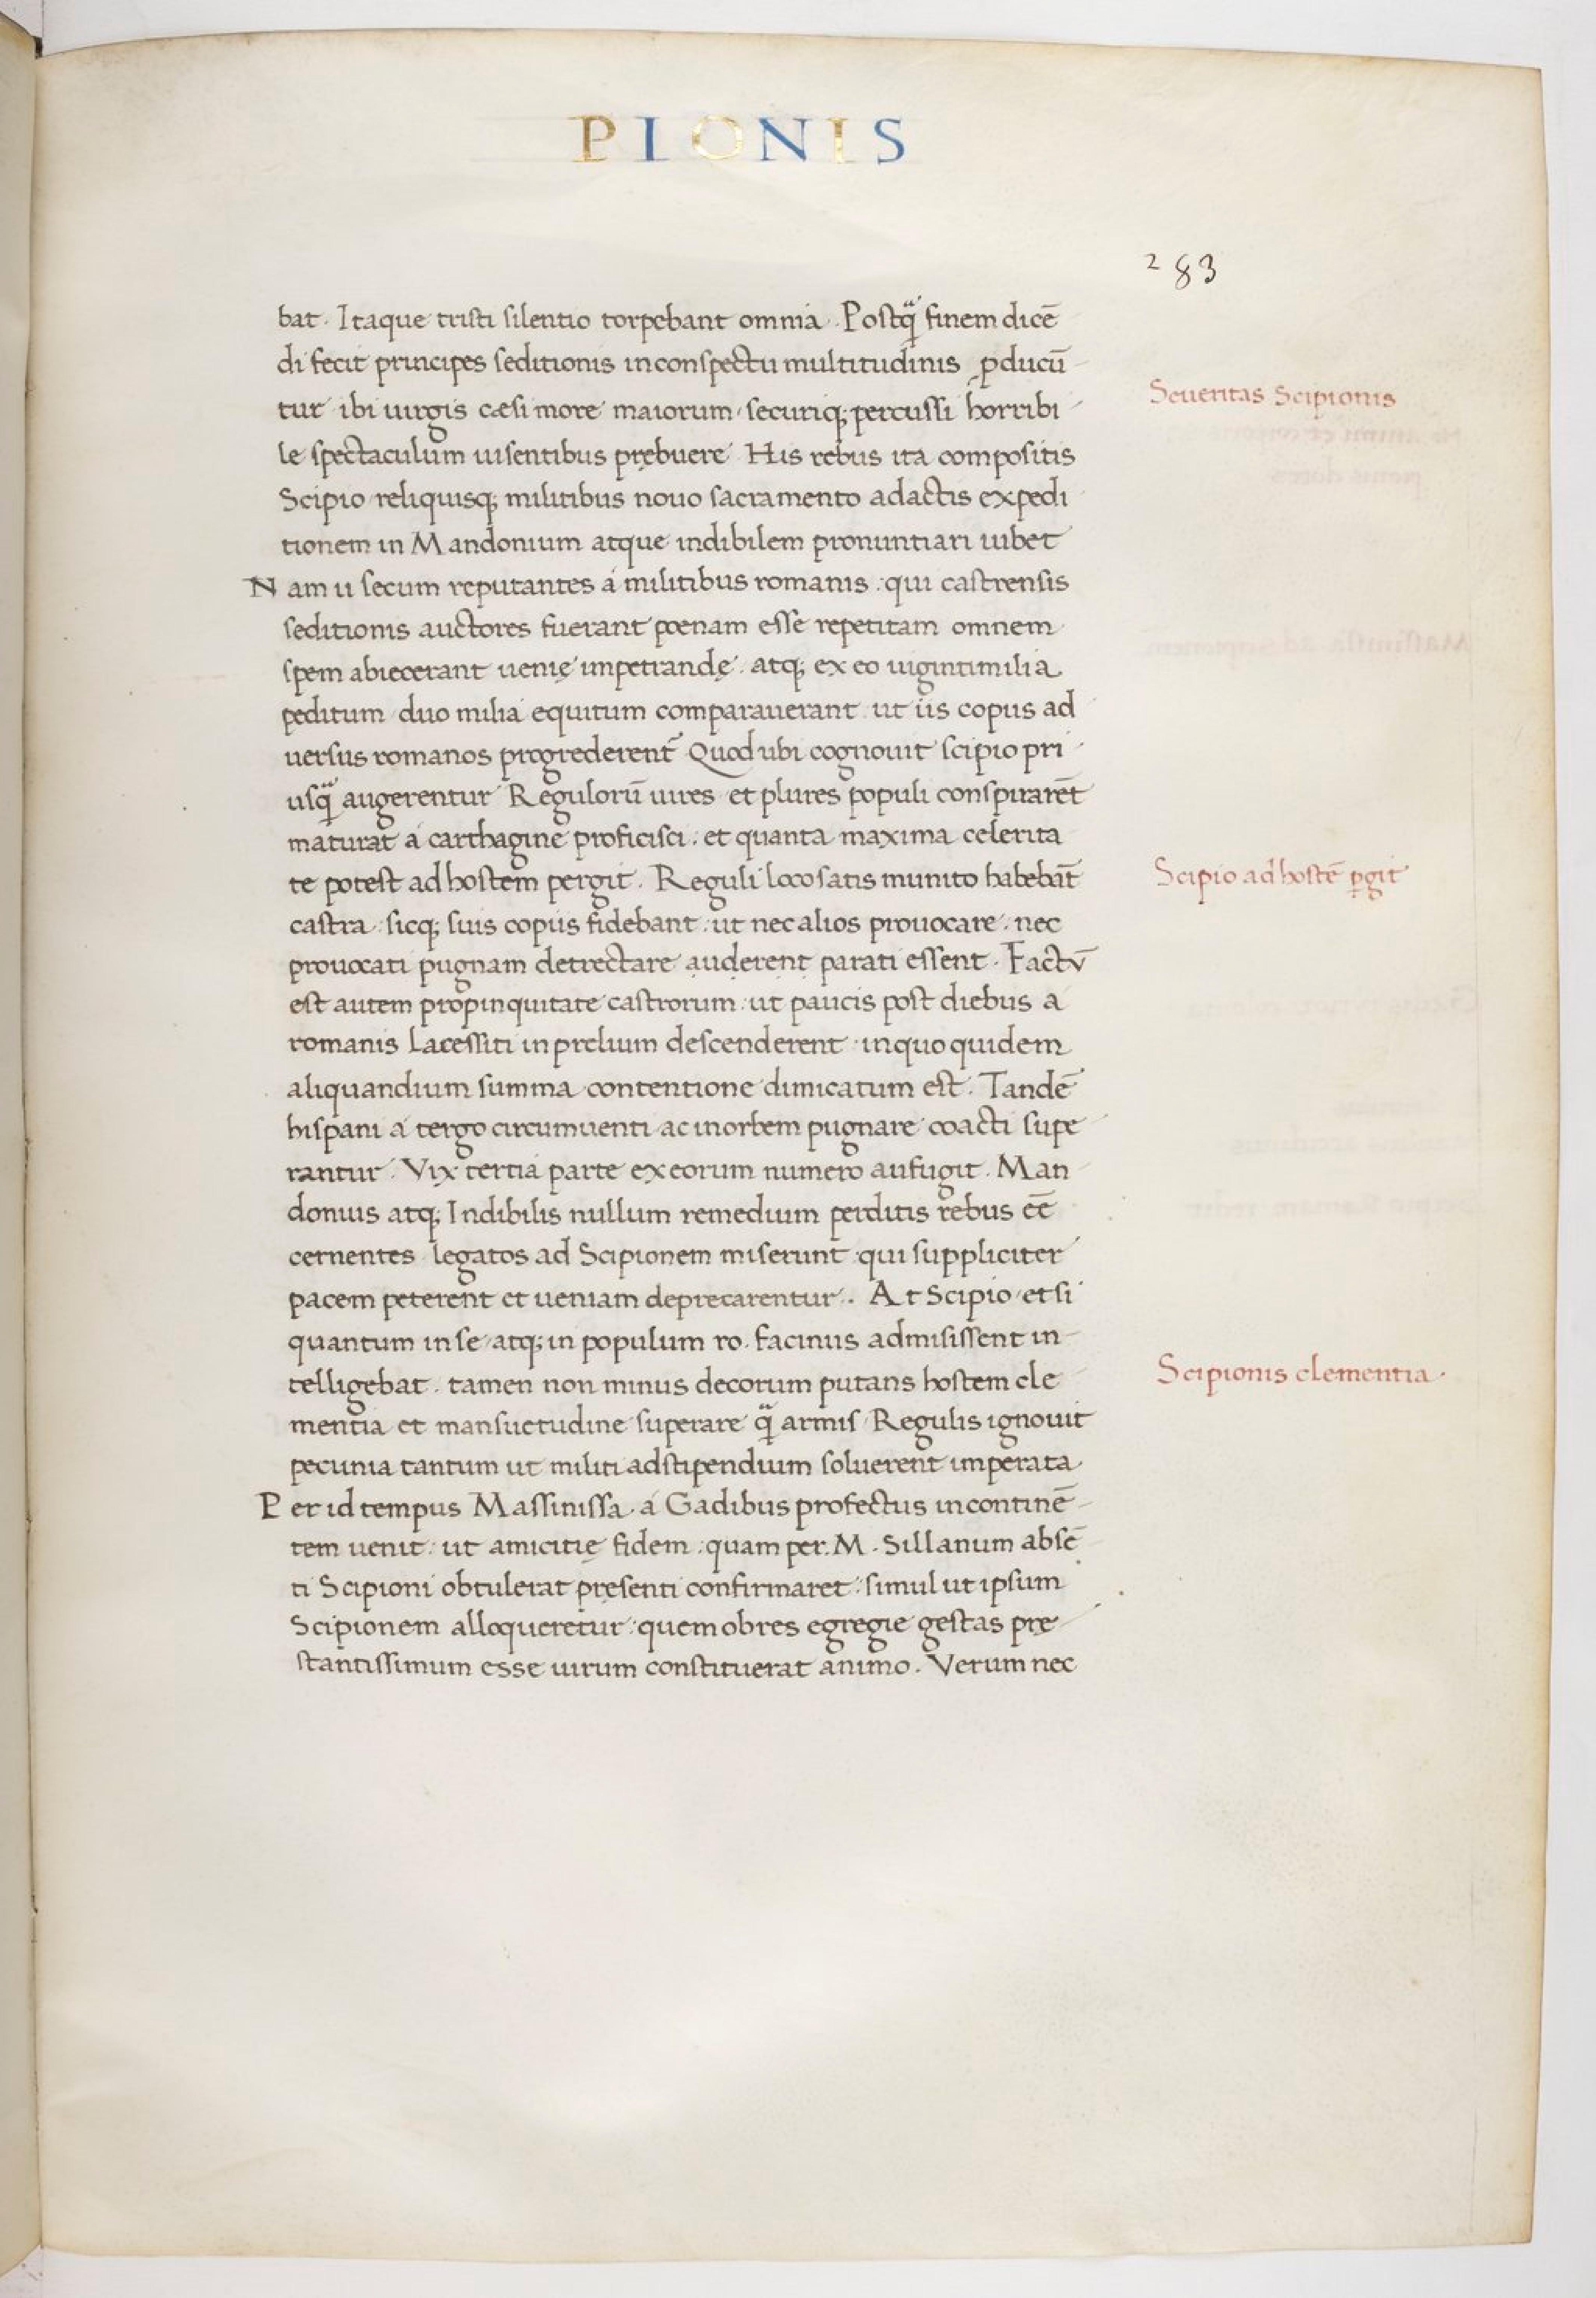 PIONIS
283
bat. Itaque tristi silentio torpebant omnia. Postq̃ finem dicē
di fecit principes seditionis inconspectu multitudinis ꝓducū
tur ibi uirgis cæsi more maiorum, securiq; percussi horribi
Seueritas Scipionis
le spectaculum uisentibus prębuere. His rebus ita compositis
Scipio reliquisq; militibus nouo sacramento adactis expedi
tionem in Mandonium atque indibilem pronuntiari iubet
Nam ii secum reputantes á militibus romanis: qui castrensis
seditionis auctores fuerant poenam esse repetitam omnem
spem abiecerant uenię impetrandę. atq; ex eo uigintimilia
peditum duo milia equitum comparauerant ut iis copiis ad
uersus romanos progrederent᷑ Quod ubi cognouit scipio pri
usq̃ augerentur Regulorū uires et plures populi conspirarēt
maturat á carthagine proficisci: et quanta maxima celerita
te potest ad hostem pergit. Reguli loco satis munito habebāt
Scipio ad hostē ꝑgit
castra: sicq; suis copiis fidebant: ut nec alios prouocare: nec
prouocati pugnam detrectare auderent parati essent. Factū
est autem propinquitate castrorum: ut paucis post diebus a
romanis Lacessiti in prelium descenderent: inquo quidem
aliquandium summa contentione dimicatum est. Tandē
hispani á tergo circumuenti ac inorbem pugnare coacti supe
rantur. Vix tertia parte ex eorum numero aufugit. Man
donius atq; Indibilis nullum remedium perditis rebus eē
cernentes legatos ad Scipionem miserunt: qui suppliciter
pacem peterent et ueniam deprecarentur. At Scipio et si
quantum in se atq; in populum ro. facinus admisissent in
telligebat. tamen non minus decorum putans hostem cle
Scipionis clementia.
mentia et mansuetudine superare q̃ armis Regulis ignouit
pecunia tantum ut militi adstipendium soluerent imperata
Per id tempus Massinissa á Gadibus profectus incontinē
tem uenit: ut amicitię fidem: quam per M. Sillanum absē
ti Scipioni obtulerat pręsenti confirmaret: simul ut ipsum
Scipionem alloqueretur: quem obres egregie gestas prę
stantissimum esse uirum constituerat animo. Verum nec